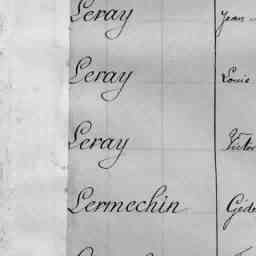 Leray Jean
Leray Louis
Leray Victor
Lermechin Gédé